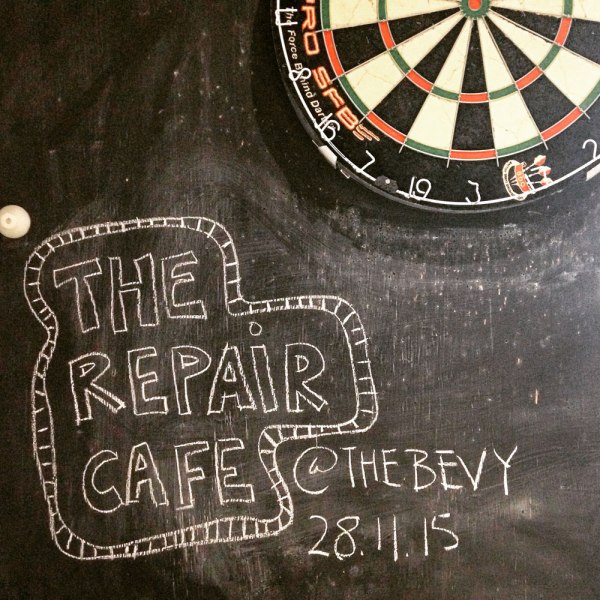 PRO SFB
The Force Behind Darts
8
16
7
19
3
2
THE
REPAiR
CAFE
@THEBEVY
28.11.15